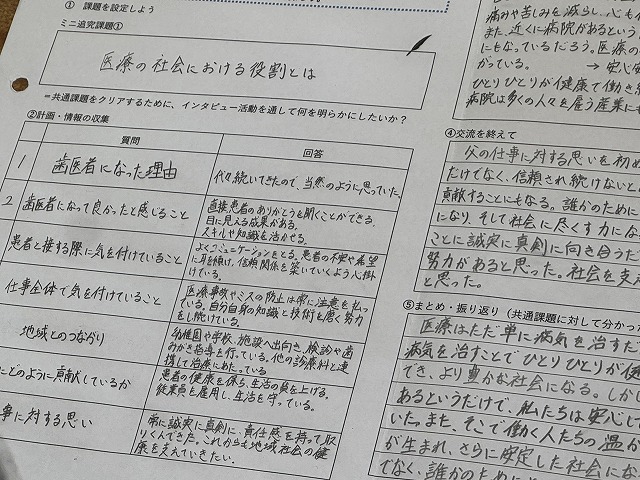 ① 課題を設定しよう
ミニ追究課題①
医療の社会における役割とは
＝共通課題をクリアするために、インタビュー活動を通して何を明らかにしたいか？
②計画・情報の収集
質問
回答
1
歯医者になった理由
代々続いてきたので、当然のように思っていた。
2
歯医者になって良かったと感じること
直接患者のありがとうを聞くことができる。
目に見える成果がある。
スキルや知識を活かせる。
患者と接する際に気を付けていること
よくコミュニケーションをとる。患者の不安や希望
に耳を傾け、信頼関係を築いていくよう心掛
けている。
仕事全体で気を付けていること
医療事故やミスの防止は常に注意を払っ
ている。自分自身の知識と技術を磨く努力
をし続けている。
地域とのつながり
幼稚園や学校、施設へ出向き、検診や歯
みがき指導を行っている。他の診療科と連
携して治療にあたっている
にどのように貢献しているか
患者の健康を保ち、生活の質を上げる。
従業員を雇用し、生活を守っている。
事に対する思い
常に誠実に真剣に、責任感を持って取
りくんできた。これからも地域社会の健
康を支えていきたい。
痛みや苦しみを減らし、心も
また、近くに病院があるという
にもなっているだろう。医療の
がっている。
→安心安
ひとりひとりが健康で働き続
病院は多くの人々を雇う産業に
④交流を終えて
父の仕事に対する思いを初め
だけでなく、信頼され続けないと
貢献することにもなる。誰かのために
になり、そして社会に尽くす力にな
ことに誠実に真剣に向き合うだ
努力があると思った。社会を支え
と思った。
⑤まとめ・振り返り（共通課題に対して分かっ
医療はただ単に病気を治すだ
病気を治すことでひとりひとりが健
でき、より豊かな社会になる。しかし
あるというだけで、私たちは安心して
いた。また、そこで働く人たちの温か
が生まれ、さらに安定した社会にな
でなく、誰かのために